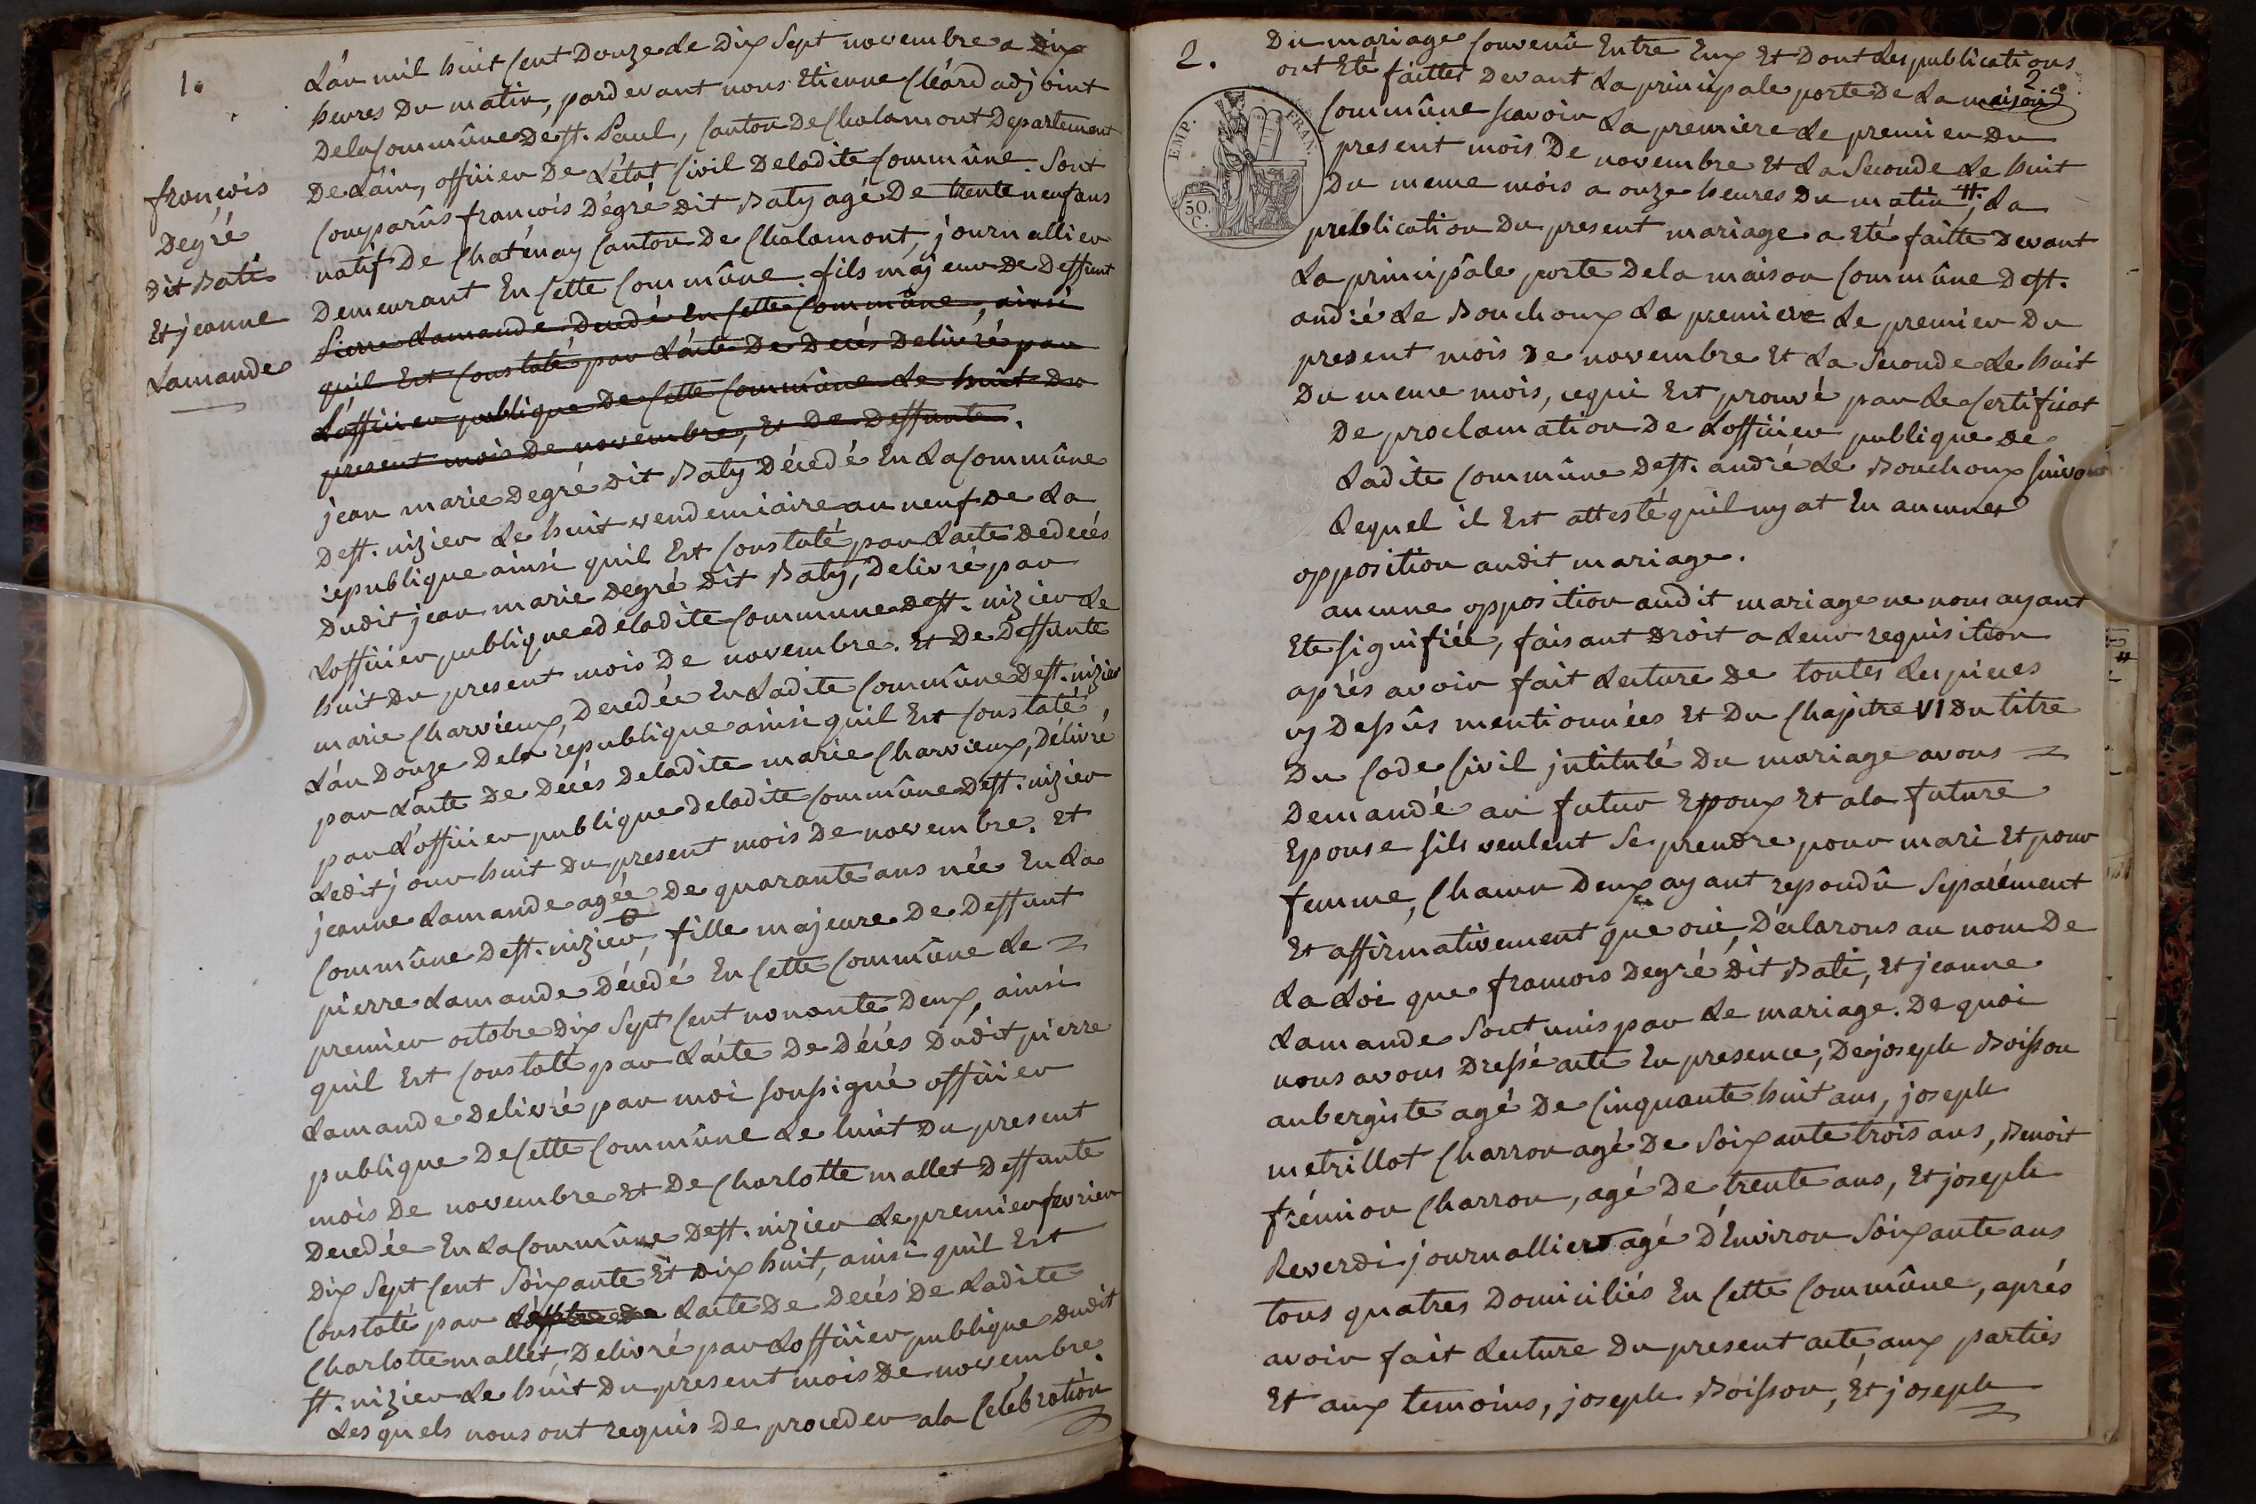 1.
françois
Degré
dit Bati
Et jeanne
Lamande
L'an mil huit cent Douze Le Dix Sept novembre a Dix
heures Du matin, pardevant nous Etienne Cléard adjoint
De la Commûne De St. Paul, Canton De Chalamont Departement
De L'ain, officier De L'état Civil De ladite Commûne. Sont
Comparûs françois Dégré dit Baty agé De trente neuf ans
natif De Chaténay Canton De Chalamont, journallier
Demeurant En Cette Commûne. fils majeur De Deffunt
Pierre Lamande Décédé En Cette Commûne, ainsi
quil Est Constaté par L'acte De Decés Delivré par
L'officier publique De Cette Commûne Le huit Du
present mois De novembre, Et De Deffunte.
jean marie Degré dit Baty Décedé En La Commûne
De St. nizier Le huit vendemiaire an neuf De La
republique ainsi quil Est Constaté par L'acte De decés
Dudit jean marie Degré dit Baty, Delivré par
L'officier publique de ladite Commune De St. nizier Le
huit Du present mois De novembre. Et De Deffunte
marie Charvieux, Decedée En Ladite Commûne De St. nizier
L'an Douze De la republique ainsi quil Est Constaté,
par L'acte De Decés De ladite marie Charvieux, Délivré
par L'officier publique De ladite Commûne De St. nizier
Ledit jour huit Du present mois De novembre. Et
jeanne Lamande agée De quarante ans née En La
Commûne De St. nizier, fille majeure De Deffunt
pierre Lamande Décedé En Cette Commûne Le
premier octobre Dix Sept Cent nonante Deux, ainsi
quil Est Constaté par L'acte De Décés Dudit pierre
Lamande Delivré par moi Soussigné officier
publique De Cette Commûne Le huit Du present
mois De novembre Et De Charlotte mallet Deffunte
Decedée En La Commûne De St. nizier Le premier fevrier
Dix Sept Cent Soixante Et Dix huit, ainsi quil Est
Constaté par L'acte De Decés De Ladite
Charlotte mallet, Delivré par L'officier publique Dudit
St. nizier Le huit Du present mois De novembre.
Les quels nous ont requis De proceder a la Célébration
2.
EMP. FRAN.
50
C.
Du mariage Convenû Entre Eux Et Dont Les publications
ont Eté faittes Devant La principale porte De La maison
2
Commûne Scavoir La premiere Le premier Du
present mois De novembre Et La Seconde Le huit
Du meme mois a onze heures Du matin #; La
publication Du present mariage a Eté faitte Devant
La principâle porte De la maison Commûne De St.
andré Le Bouchoux La premiere Le premier Du
present mois De novembre Et La Seconde Le huit
Du meme mois, ce qui Est prouvé par Le Certificat
De proclamation De L'officier publique De
Ladite Commûne De St. andré Le Bouchoux Suivant
Lequel il Est attesté quil ny at Eu aucunes
opposition audit mariage.
aucune opposition audit mariage ne nous ayant
Eté Signifiée, faisant Droit a Leur requisition
aprés avoir fait Lecture De toutes Les pieces
cy Dessûs mentionnées Et Du Chapitre VI Du titre
Du Code Civil jntitulé Du mariage avons
Demandé au futur Epoux Et a la future
Epouse Sils veulent Se prendre pour mari Et pour
femme, Chacun Deux ayant repondû Séparément
Et affirmativement que oui, Déclarons au nom De
La Loi que francois Degré dit Bati, Et jeanne
Lamande Sont unis par Le mariage. De quoi
nous avons Dressé acte En presence, De joseph Boisson
aubergiste agé De Cinquante huit ans, joseph
metrillot Charron agé De Soixante trois ans, Benoit
frémion Charron, agé De trente ans, Et joseph
Reverdi journallier agé D'Environ Soixante ans
tous quatres Domiciliés En Cette Commûne, aprés
avoir fait Lecture Du present acte, aux parties
Et aux temoins, joseph Boisson, Et joseph